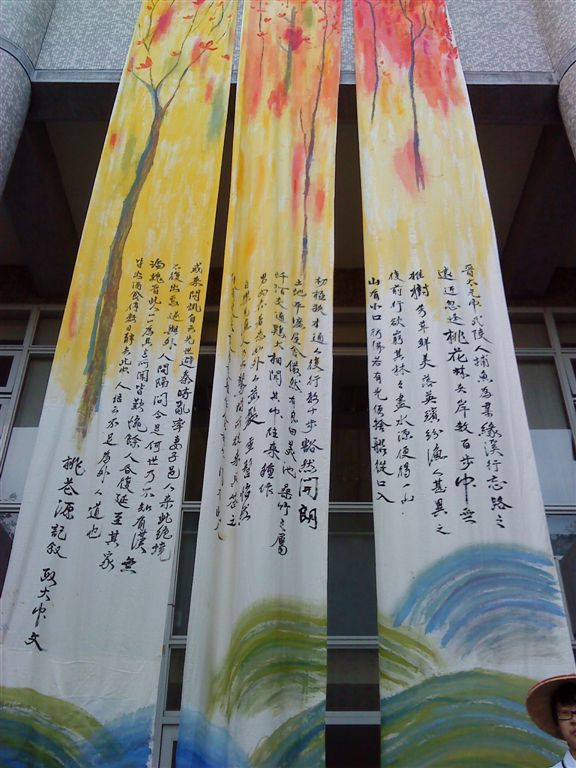 晉太元中武陵人捕魚為業緣溪行忘路之
遠近忽逢桃花林夾岸數百步中無
雜樹芳草鮮美落英繽紛漁人甚異之
復前行欲窮其林林盡水源便得一山
山有小口彷彿若有光便捨船從口入
初極狹才通人復行數十步豁然開朗
土地平曠屋舍儼然有良田美池桑竹之屬
阡陌交通雞犬相聞其中往來種作
男女衣著悉如外人黃髮垂髫怡然
自樂見漁人乃大驚問所從來具答之
咸來問訊自云先世避秦時亂率妻子邑人來此絕境
不復出焉遂與外人間隔問今是何世乃不知有漢無
論魏晉此人一一為具言所聞皆歎惋餘人各復延至其家
皆出酒食停數日辭去此中人語云不足為外人道也
桃花源記叙 政大中文